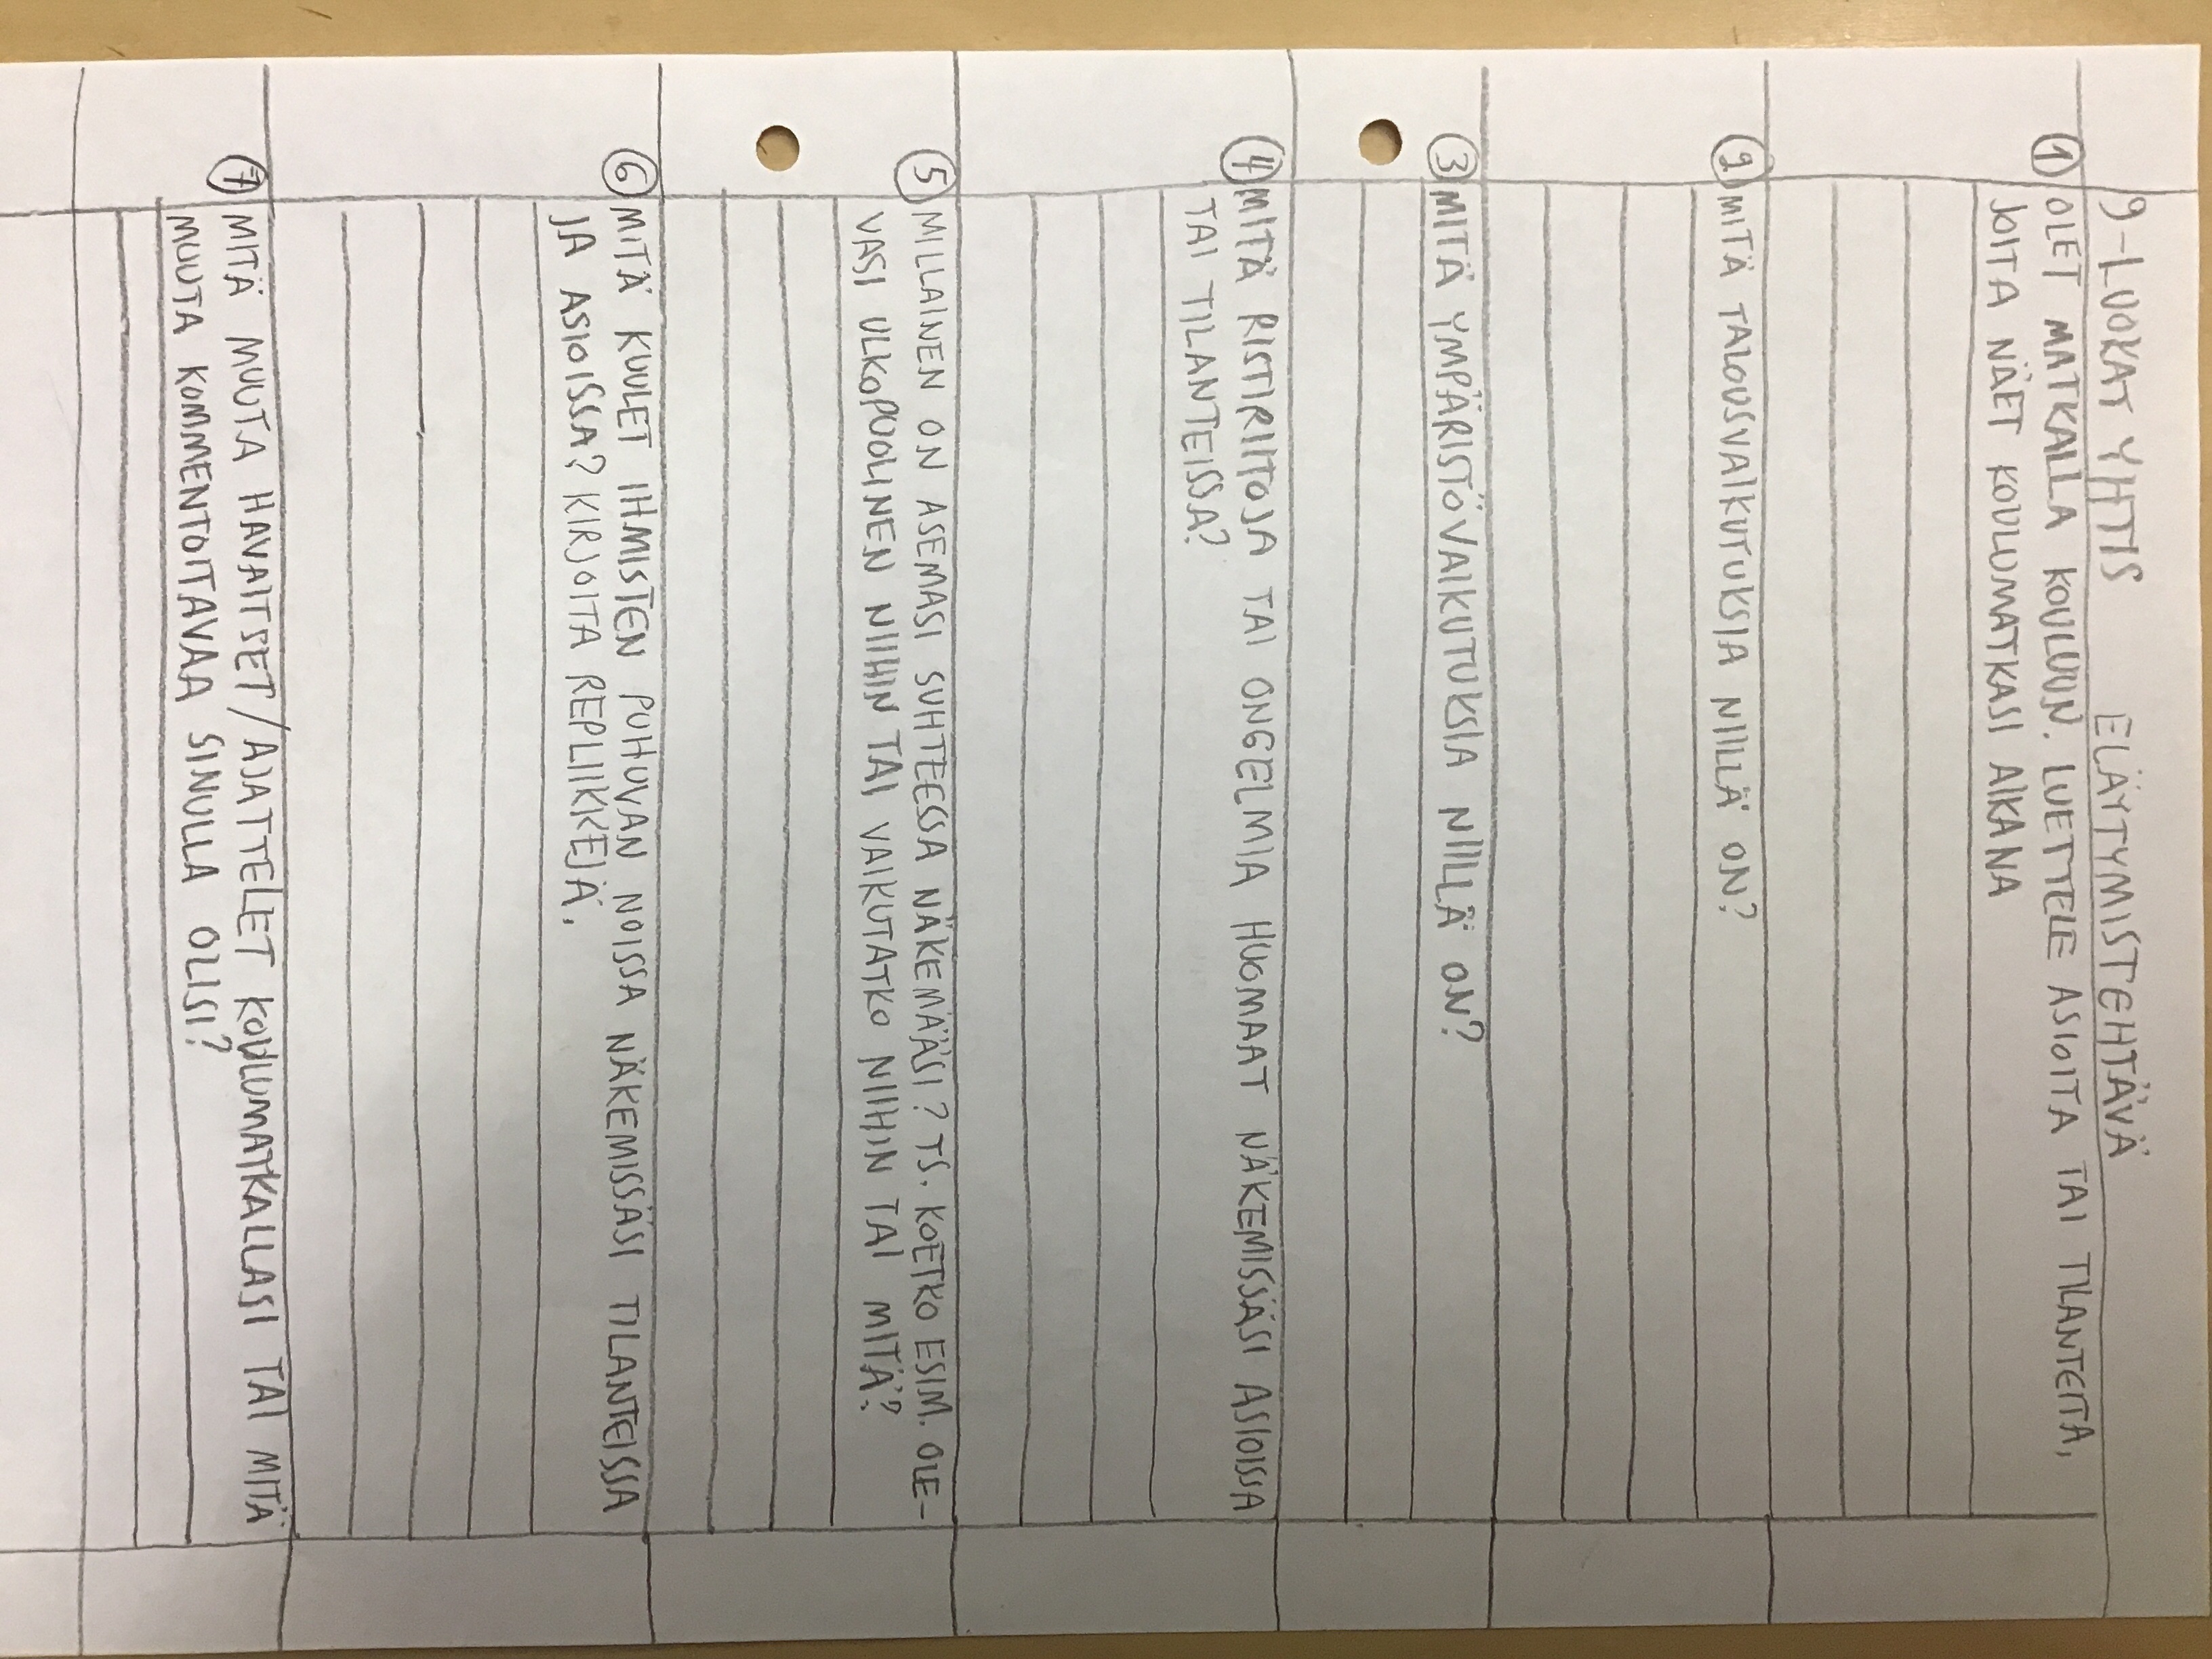 9-LUOKAT YHTIS ELÄYTYMISTEHTÄVÄ
① OLET MATKALLA KOULUUN. LUETTELE ASIOITA TAI TILANTEITA,
JOITA NÄET KOULUMATKASI AIKANA
② MITÄ TALOUSVAIKUTUKSIA NIILLÄ ON?
③ MITÄ YMPÄRISTÖVAIKUTUKSIA NIILLÄ ON?
④ MITÄ RISTIRIITOJA TAI ONGELMIA HUOMAAT NÄKEMISSÄSI ASIOISSA
TAI TILANTEISSA?
⑤ MILLAINEN ON ASEMASI SUHTEESSA NÄKEMÄÄSI? TS. KOETKO ESIM. OLE-
VASI ULKOPUOLINEN NIIHIN TAI VAIKUTATKO NIIHIN TAI MITÄ?
⑥ MITÄ KUULET IHMISTEN PUHUVAN NOISSA NÄKEMISSÄSI TILANTEISSA
JA ASIOISSA? KIRJOITA REPLIIKKEJÄ.
⑦ MITÄ MUUTA HAVAITSET/AJATTELET KOULUMATKALLASI TAI MITÄ
MUUTA KOMMENTOITAVAA SINULLA OLISI?